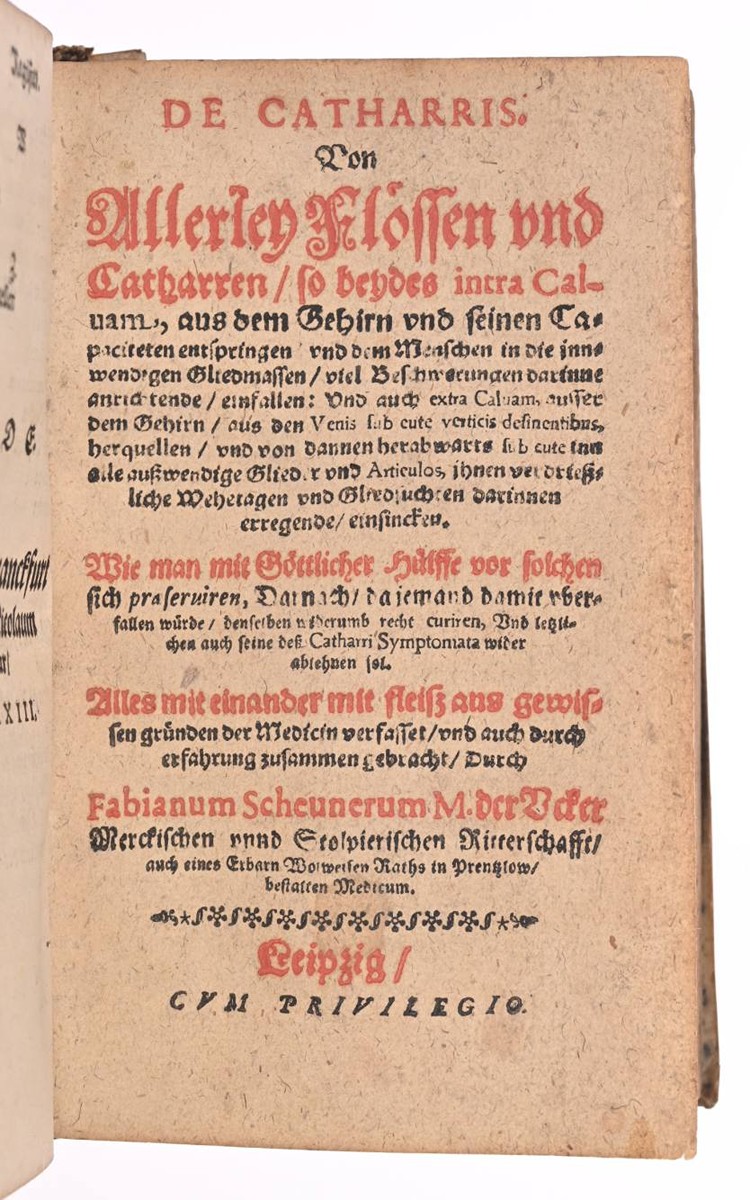 DE CATHARRIS.
Von
Allerley Flössen vnd
Catharren / so beydes intra Cal-
uam, aus dem Gehirn vnd seinen Ca-
paciteten entspringen / vnd dem Menschen in die inn-
wendigen Gliedmassen / viel Beschwerungen darinne
anrichtende / einfallen: Vnd auch extra Caluam, ausser
dem Gehirn / aus den Venis sub cute verticis desinentibus,
herquellen / vnd von dannen herabwarts sub cute inn
alle außwendige Glieder vnd Articulos, ihnen verdrieß-
liche Wehetagen vnd Gliedsuchten darinnen
erregende / einsincken.
Wie man mit Göttlicher Hülffe vor solchen
sich præseruiren, Darnach / da jemand damit vber-
fallen würde / denselben widerumb recht curiren, Vnd letzli-
chen auch seine deß Catharri Symptomata wider
ablehnen sol.
Alles mit einander mit fleisz aus gewis-
sen gründen der Medicin verfasset / vnd auch durch
erfahrung zusammen gebracht / Durch
Fabianum Scheunerum M. der Vcker
Merckischen vnnd Stolpierischen Ritterschafft /
auch eines Erbarn Wolweisen Raths in Prentzlow /
bestalten Medicum.
Leipzig /
CVM PRIVILEGIO.
D E
anckfurt
icolaum
XIII.